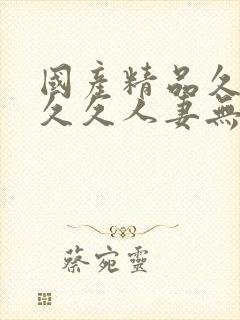 國產精品久
久久人妻無
蔡宛靈